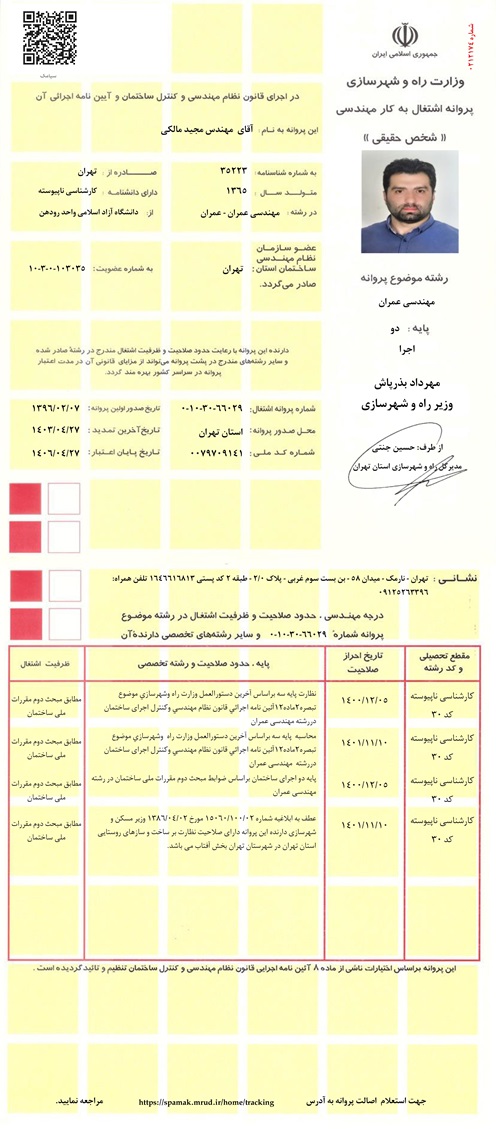 شماره ۰۲۱۲۱۷۴
جمهوری اسلامی ایران
وزارت راه و شهرسازی
پروانه اشتغال به کار مهندسی
« شخص حقیقی »
رشته موضوع پروانه
مهندسی عمران
پایه : دو
اجرا
مهرداد بذرپاش
وزیر راه و شهرسازی
از طرف: حسین جنتی
مدیرکل راه و شهرسازی استان تهران
سپامک
در اجرای قانون نظام مهندسی و کنترل ساختمان و آیین نامه اجرائی آن
این پروانه به نام : آقای مهندس مجید مالکی
به شماره شناسنامه: ۳۵۲۲۳ صادره از : تهران
متولد سال : ۱۳۶۵ دارای دانشنامه : کارشناسی ناپیوسته
در رشته : مهندسی عمران - عمران از: دانشگاه آزاد اسلامی واحد رودهن
عضو سازمان
نظام مهندسی
ساختمان استان: تهران به شماره عضویت: ۱۰-۳-۰-۱۰۳۰۳۵
صادر می‌گردد.
دارنده این پروانه با رعایت حدود صلاحیت و ظرفیت اشتغال مندرج در رشته صادر شده
و سایر رشته‌های مندرج در پشت پروانه می‌تواند از مزایای قانونی آن در مدت اعتبار
پروانه در سراسر کشور بهره مند گردد.
شماره پروانه اشتغال: ۱۰-۳۰-۶۶۰۲۹-۰ تاریخ صدور اولین پروانه: ۱۳۹۶/۰۲/۰۷
محل صدور پروانه: استان تهران تاریخ آخرین تمدید : ۱۴۰۳/۰۴/۲۷
شماره کد ملی : ۰۰۷۹۷۰۹۱۴۱ تاریخ پایان اعتبار: ۱۴۰۶/۰۴/۲۷
نشانی : تهران - نارمک - میدان ۵۸ - بن بست سوم غربی - پلاک ۲/۰ - طبقه ۲ کد پستی ۱۶۴۶۶۱۶۸۱۳ تلفن همراه:
۰۹۱۲۵۲۶۳۳۹۶
درجه مهندسی ، حدود صلاحیت و ظرفیت اشتغال در رشته موضوع
پروانه شماره ۱۰-۳۰-۶۶۰۲۹-۰ و سایر رشته‌های تخصصی دارنده آن
مقطع تحصیلی و کد رشته تاریخ احراز صلاحیت پایه ، حدود صلاحیت و رشته تخصصی ظرفیت اشتغال
کارشناسی ناپیوسته کد ۳۰ ۱۴۰۰/۱۲/۰۵ نظارت پایه سه براساس آخرین دستورالعمل وزارت راه وشهرسازي موضوع
تبصره۲ماده۱۲آئین نامه اجرائي قانون نظام مهندسي وکنترل اجرای ساختمان
دررشته مهندسی عمران مطابق مبحث دوم مقررات ملی ساختمان
کارشناسی ناپیوسته کد ۳۰ ۱۴۰۱/۱۱/۱۰ محاسبه پایه سه براساس آخرین دستورالعمل وزارت راه وشهرسازي موضوع
تبصره۲ماده۱۲آئین نامه اجرائي قانون نظام مهندسي وکنترل اجرای ساختمان
دررشته مهندسی عمران مطابق مبحث دوم مقررات ملی ساختمان
کارشناسی ناپیوسته کد ۳۰ ۱۴۰۰/۱۲/۰۵ پایه دو اجرای ساختمان براساس ضوابط مبحث دوم مقررات ملی ساختمان در رشته
مهندسی عمران مطابق مبحث دوم مقررات ملی ساختمان
کارشناسی ناپیوسته کد ۳۰ ۱۴۰۱/۱۱/۱۰ عطف به ابلاغیه شماره ۱۵۰۶۰/۱۰۰/۰۲ مورخ ۱۳۸۶/۰۴/۰۲ وزیر مسکن و
شهرسازی دارنده این پروانه دارای صلاحیت نظارت بر ساخت و سازهای روستایی
استان تهران در شهرستان تهران بخش آفتاب می باشد. مطابق مبحث دوم مقررات ملی ساختمان
این پروانه براساس اختیارات ناشی از ماده ۸ آئین نامه اجرایی قانون نظام مهندسی و کنترل ساختمان تنظیم و تائید گردیده است .
جهت استعلام اصالت پروانه به آدرس https://spamak.mrud.ir/home/tracking مراجعه نمایید.